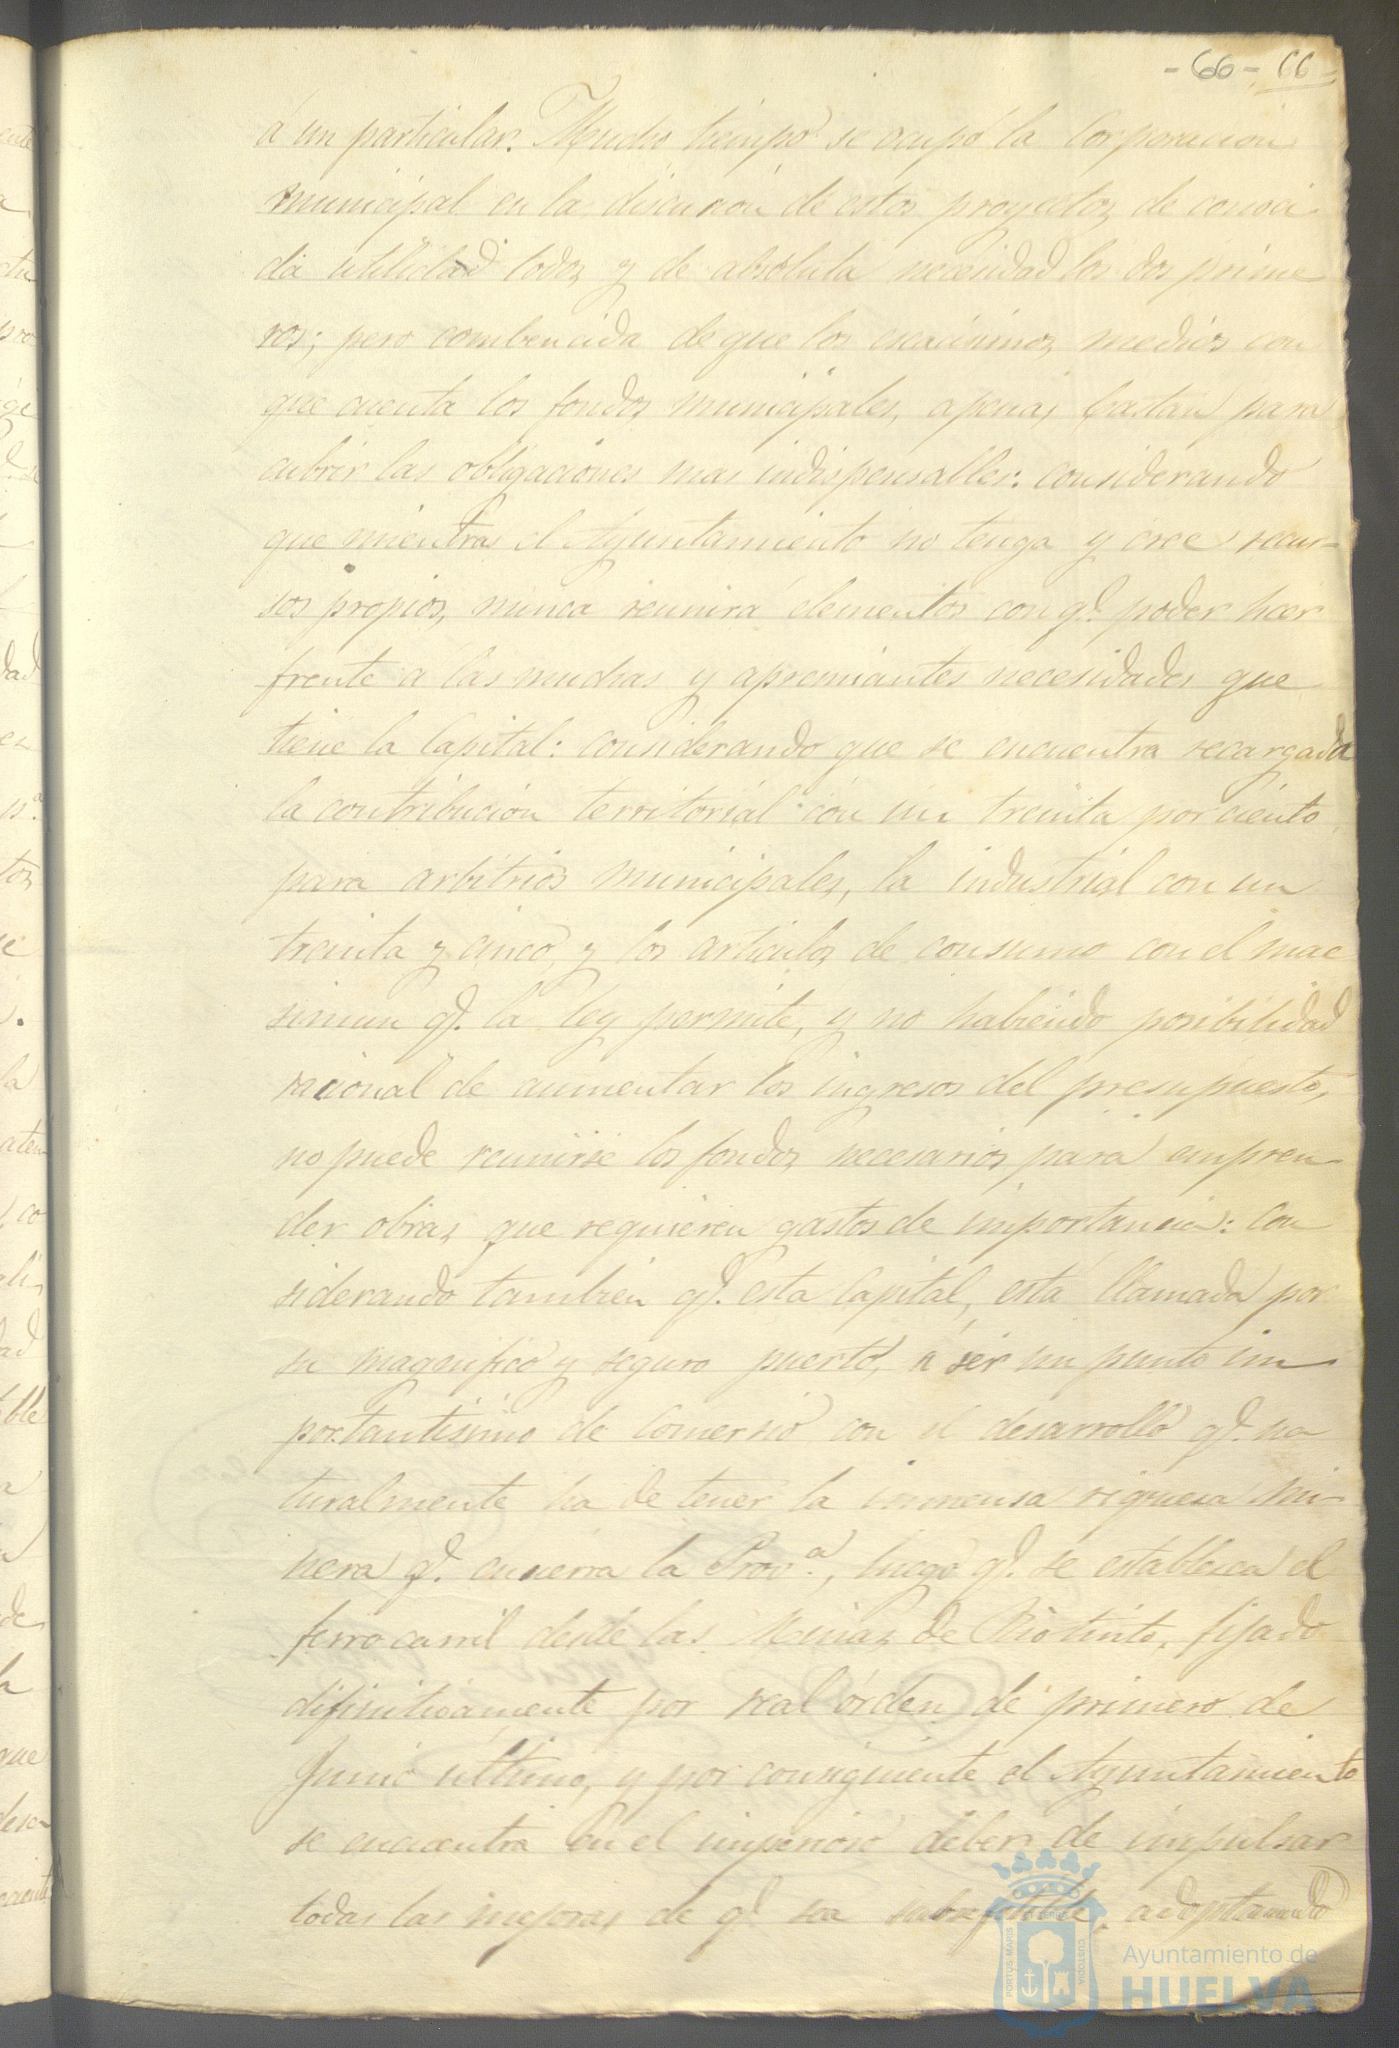 -66- 66
á un particular. Mucho tiempo se ocupó la Corporacion
municipal en la discusion de estos proyectos, de conoci
da utilidad todos, y de absoluta necesidad los dos prime
ros; pero combencida de que los escasisimos medios con
que cuenta los fondos municipales, apenas bastan para
cubrir las obligaciones mas indispensables: considerando
que mientras el Ayuntamiento no tenga y cree recur-
sos propios, nunca reunirá elementos con q.e poder hacer
frente á las muchas y apremiantes necesidades que
tiene la Capital: considerando que se encuentra recargada
la contribucion territorial con un treinta por ciento
para arbitrios municipales, la industrial con un
treinta y cinco, y los articulos de consumo con el mac
simun q.e la ley permite, y no habiendo posibilidad
racional de aumentar los ingresos del presupuesto,
no puede reunirse los fondos necesarios para empren
der obras que requieren gastos de importancia: Con
siderando tambien q.e esta Capital, está llamada por
su magnifico y seguro puerto, á ser un punto im
portantisimo de Comersio con el desarrollo q.e na
turalmente ha de tener la inmensa riquesa mi-
nera q.e encierra la Prov.a, luego q.e se establesca el
ferro carril desde las Minas de Riotinto, fijado
difinitivamente por real órden de primero de
Junio último, y por consiguiente el Ayuntamiento
se encuentra en el imperioso deber de impulsar
todas las mejoras de q.e sea, adoptando
PORTUS MARIS
CUSTODIA
Ayuntamiento de
HUELVA